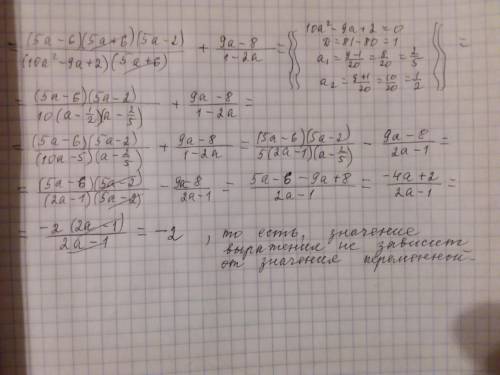 = (5a-6)(5a+6)(5a-2) / (10a²-9a+2)(5a+6) + 9a-8 / 1-2a = { 10a²-9a+2=0 } =
D = 81-80 = 1
a₁ = 9-1 / 20 = 8 / 20 = 2 / 5
a₂ = 9+1 / 20 = 10 / 20 = 1 / 2
= (5a-6)(5a-2) / 10(a-1/2)(a-2/5) + 9a-8 / 1-2a =
= (5a-6)(5a-2) / (10a-5)(a-2/5) + 9a-8 / 1-2a = (5a-6)(5a-2) / 5(2a-1)(a-2/5) - 9a-8 / 2a-1 =
= (5a-6)(5a-2) / (2a-1)(5a-2) - 9a-8 / 2a-1 = 5a-6-9a+8 / 2a-1 = -4a+2 / 2a-1 =
= -2(2a-1) / 2a-1 = -2 , то есть, значение
выражения не зависит
от значения переменной.